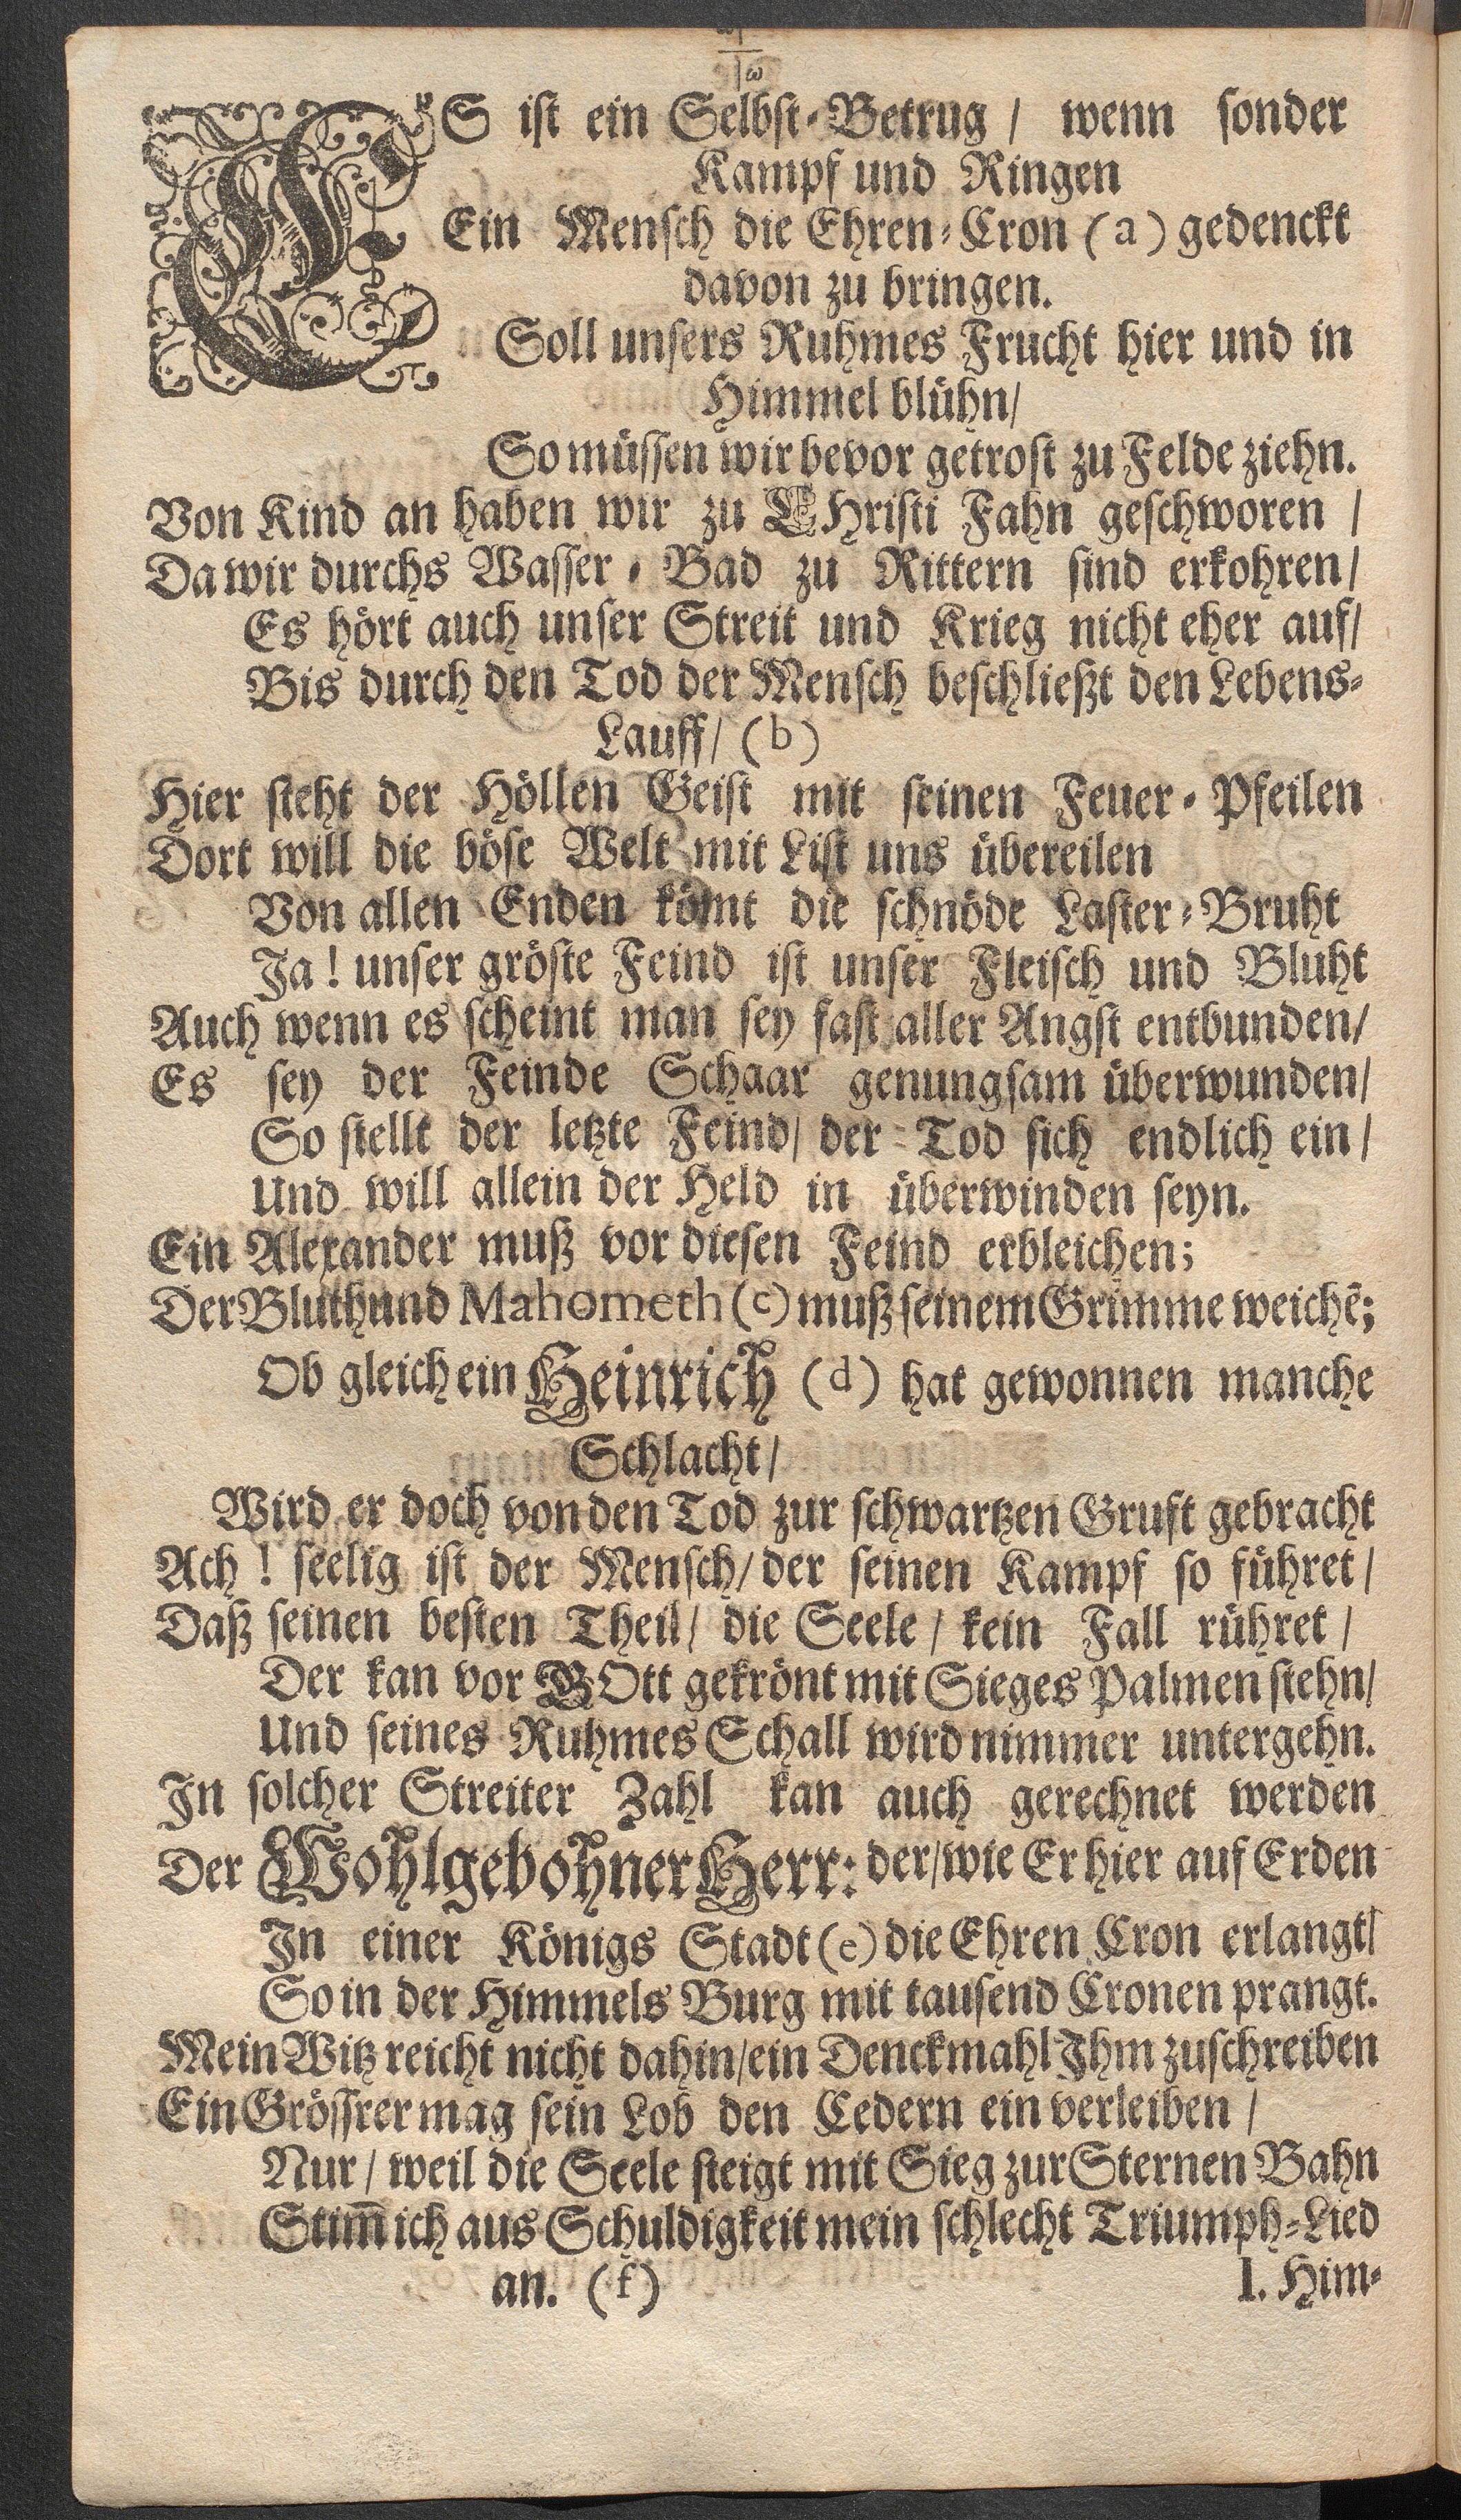 ES ist ein Selbst-Betrug / wenn sonder
Kampf und Ringen
Ein Mensch die Ehren-Cron (a) gedenckt
davon zu bringen.
Soll unsers Ruhmes Frucht hier und in
Himmel blühn/
So müssen wir bevor getrost zu Felde ziehn.
Von Kind an haben wir zu CHristi Fahn geschworen /
Da wir durchs Wasser-Bad zu Rittern sind erkohren/
Es hört auch unser Streit und Krieg nicht eher auf/
Bis durch den Tod der Mensch beschließt den Lebens-
Lauff/ (b)
Hier steht der Höllen Geist mit seinen Feuer-Pfeilen
Dort will die böse Welt mit List uns übereilen
Von allen Enden kömt die schnöde Laster-Bruht
Ja! unser gröste Feind ist unser Fleisch und Bluht
Auch wenn es scheint man sey fast aller Angst entbunden/
Es sey der Feinde Schaar genungsam überwunden/
So stellt der letzte Feind/ der Tod sich endlich ein/
Und will allein der Held in überwinden seyn.
Ein Alexander muß vor diesen Feind erbleichen;
Der Bluthund Mahometh (c) muß seinem Grimme weichē;
Ob gleich ein Heinrich (d) hat gewonnen manche
Schlacht/
Wird er doch von den Tod zur schwartzen Gruft gebracht
Ach! seelig ist der Mensch/ der seinen Kampf so führet/
Daß seinen besten Theil/ die Seele/ kein Fall rühret/
Der kan vor GOtt gekrönt mit Sieges Palmen stehn/
Und seines Ruhmes Schall wird nimmer untergehn.
In solcher Streiter Zahl kan auch gerechnet werden
Der Wohlgebohner Herr: der/ wie Er hier auf Erden
In einer Königs Stadt (e) die Ehren Cron erlangt/
So in der Himmels Burg mit tausend Cronen prangt.
Mein Witz reicht nicht dahin/ ein Denckmahl Ihm zuschreiben
Ein Grössrer mag sein Lob den Cedern ein verleiben /
Nur/ weil die Seele steigt mit Sieg zur Sternen Bahn
Stim̅ ich aus Schuldigkeit mein schlecht Triumph-Lied
an. (f)
1. Him-